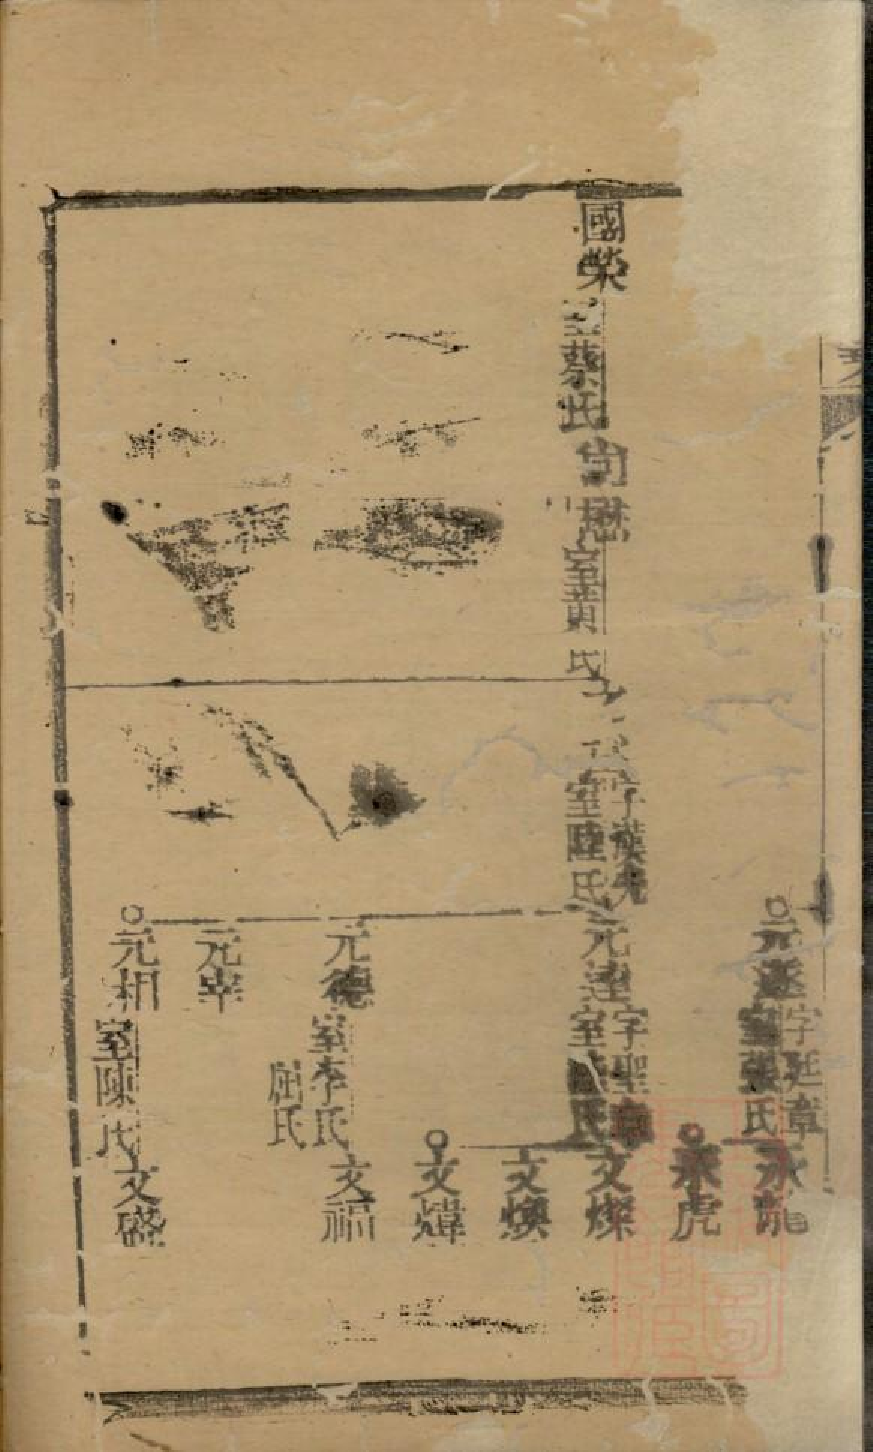 元遂 字廷章 室張氏
永龍
永虎
國榮 室蔡氏
尚懋 室黃氏
字漢先 室陸氏
元達 字聖章 室陸氏
文燦
文煥
文煒
元德 室李氏 屈氏
文福
元宰
元相 室陳氏
文盛